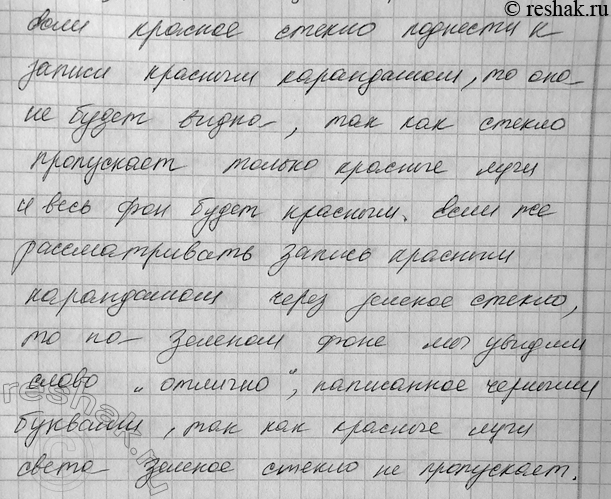 © reshak.ru
Если красное стекло поднести к
записи красным карандашом, то оно
не будет видно, так как стекло
пропускает только красные лучи
и весь фон будет красным. Если же
рассматривать запись красным
карандашом через зеленое стекло,
то на зеленом фоне мы увидим
слово "отлично", написанное черными
буквами, так как красные лучи
света зеленое стекло не пропускает.
reshak.ru